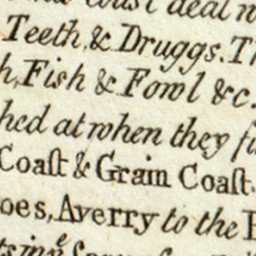 Coast deal
Teeth, & Druggs. T
h, Fish & Fowl &c.
hed at when they fi
Coaſt & Grain Coaſt.
oes, Averry to the